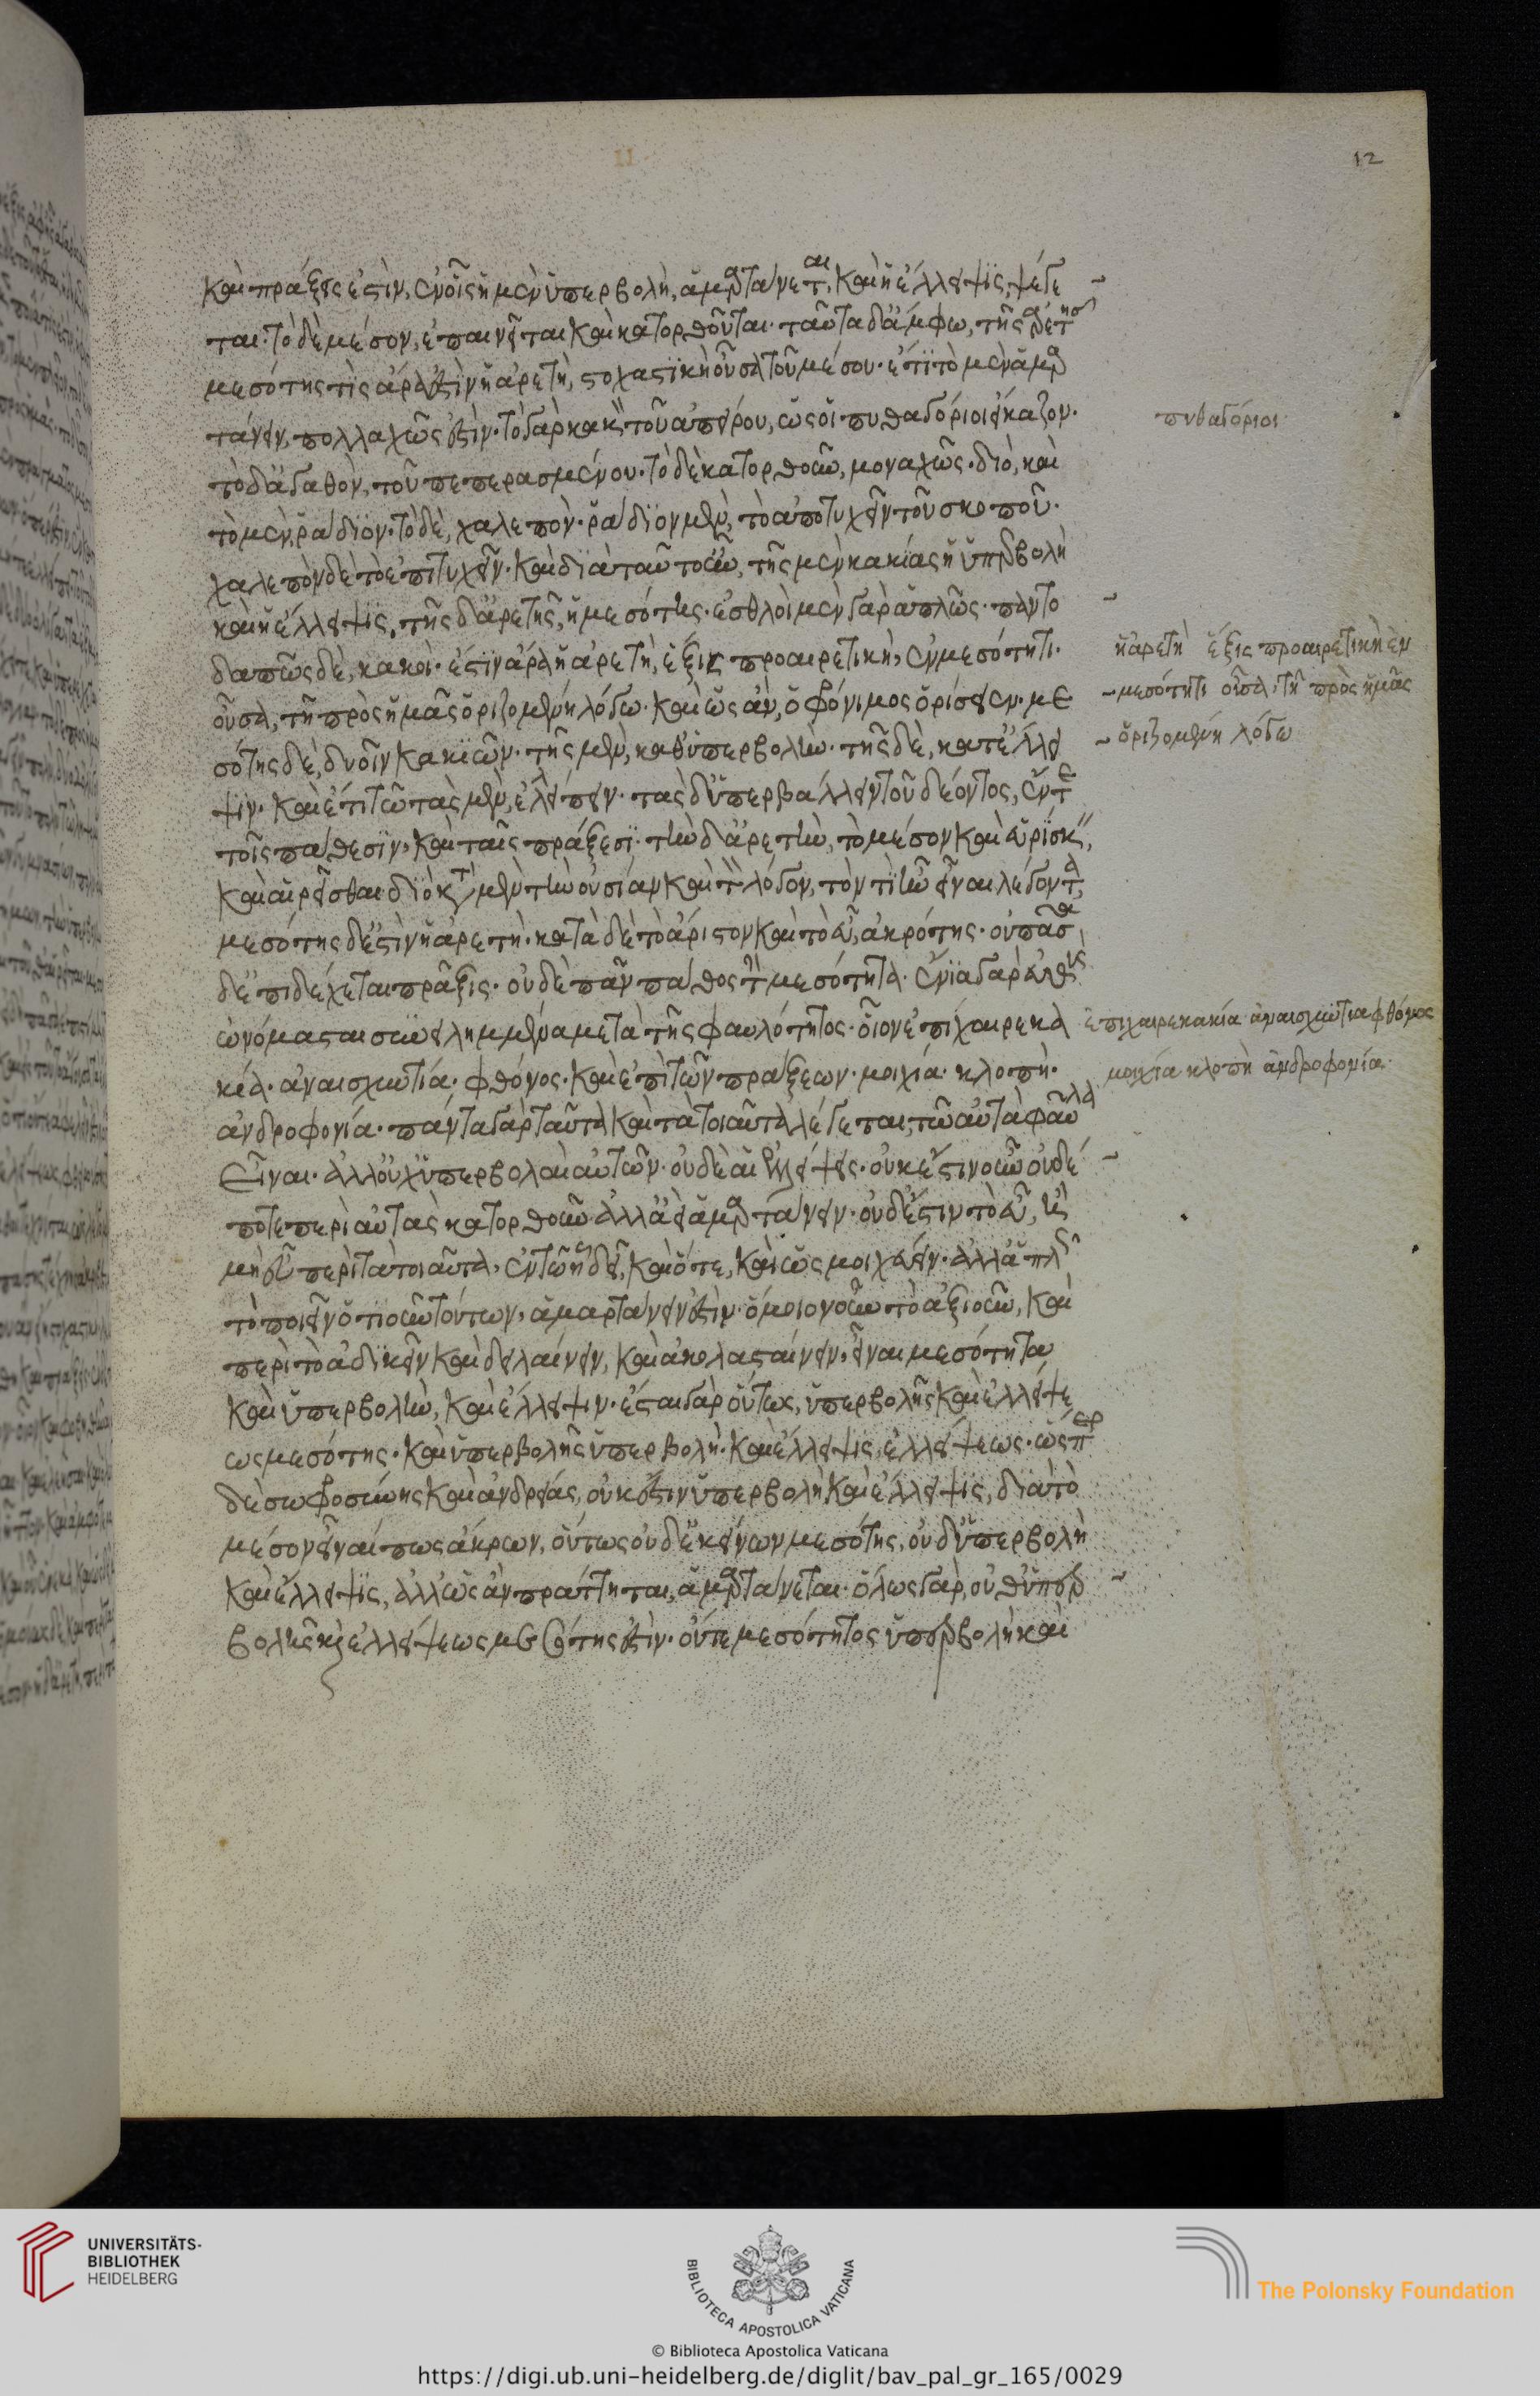 12
καὶ πράξεις ἐστὶν, ἐν οἷς ἡ μὲν ὑπερβολὴ, ἁμαρτάνεται, καὶ ἡ ἔλλειψϊς, ψέγε
ται· τὸ δὲ μέσον, ἐπαινεῖται καὶ κατορθοῦται· ταῦτα δ᾽ ἄμφω, τῆς ἀρετῆς·
μεσότης τὶς ἄρα ἐστὶν ἡ ἀρετὴ, στοχαστϊκὴ οὖσα τοῦ μέσου· ἔτϊ τὸ μὲν ἁμαρ
τάνειν, πολλαχῶς ἐστὶν· τὸ γὰρ κακὸν, τοῦ ἀπείρου, ὡς οἱ πυθαγόριοι εἴκαζον·
πυθαγόριοι
τὸ δ᾽ ἀγαθὸν, τοῦ πεπερασμένου· τὸ δὲ κατορθοῦν, μοναχῶς· διὸ, καὶ
τὸ μὲν, ῥάδϊον· τὸ δὲ, χαλεπὸν· ῥάδϊον μὲν, τὸ ἀποτυχεῖν τοῦ σκοποῦ·
χαλεπὸν δὲ τὸ ἐπιτυχεῖν· καὶ δϊὰ ταῦτ᾽ οὖν, τῆς μὲν κακίας ἡ ὑπερβολὴ
καὶ ἡ ἔλλειψϊς, τῆς δ᾽ ἀρετῆς, ἡ μεσότης· ἐσθλοὶ μὲν γὰρ ἁπλῶς· παντο
δαπῶς δὲ, κακοὶ· ἔστϊν ἄρα ἡ ἀρετὴ, ἕξις προαιρετικὴ, ἐν μεσότητι·
ἡ ἀρετὴ ἕξις προαιρετικὴ ἐν
οὖσα, τῆ πρὸς ἡμᾶς ὁριζομένη λόγω· καὶ ὡς ἂν, ὁ φρόνιμος ὁρίσειεν· με
μεσότητι οὖσα, τῆ πρὸς ἡμᾶς
σότης δὲ, δυοῖν κακϊῶν· τῆς μὲν, καθ᾽ ὑπερβολὴν· τῆς δὲ, κατ᾽ ἔλλει
ὁριζομένη λόγω
ψϊν· καὶ ἔτι τῶ τὰς μὲν, ἐλλείπειν· τὰς δ᾽ ὑπερβάλλειν τοῦ δέοντος, ἔν τε
τοῖς πάθεσϊν, καὶ ταῖς πράξεσϊ· τὴν δ᾽ ἀρετὴν, τὸ μέσον καὶ εὑρίσκειν,
καὶ αἱρεῖσθαι· διὸ κατὰ μὲν τὴν οὐσίαν καὶ τὸν λόγον, τὸν τὶ ἦν εἶναι λέγοντα,
μεσότης δ᾽ ἐστὶν ἡ ἀρετὴ· κατὰ δὲ τὸ ἄριστον καὶ τὸ εὖ, ἀκρότης· οὐ πᾶσα
δ᾽ ἐπιδέχεται πρᾶξις· οὐδὲ πᾶν πάθος τὴν μεσότητα· ἔνϊα γὰρ εὐθὺς
ὠνόμασται συνειλημμένα μετὰ τῆς φαυλότητος· οἷον ἐπιχαιρεκα
ἐπιχαιρεκακία ἀναισχυντία φθόνος
κία· ἀναισχυντία· φθόνος· καὶ ἐπὶ τῶν πράξεων· μοιχία· κλοπὴ·
μοιχία κλοπὴ ἀνδροφονία·
ἀνδροφονία· πάντα γὰρ ταῦτα καὶ τὰ τοιαῦτα λέγεται, τῶ αὐτὰ φαῦλα
εἶναι· ἀλλ᾽ οὐχ ὑπερβολαὶ αὐτῶν· οὐδὲ αἱ ἐλλείψεις· οὐκ ἔστιν οὖν οὐδέ
ποτε περὶ αὐτὰς κατορθοῦν ἀλλ᾽ ἀεὶ ἁμαρτάνειν· οὐδ᾽ ἔστιν τὸ εὖ, ἢ
μὴ εὖ περὶ τὰ τοιαῦτα, ἐν τῶ ἣν δεῖ, καὶ ὅτε, καὶ ὡς μοιχεύειν· ἀλλ᾽ ἁπλῶς
τὸ ποιεῖν ὁτιοῦν τούτων, ἁμαρτάνειν ἐστὶν· ὅμοιον οὖν τὸ ἀξιοῦν, καὶ
περὶ τὸ ἀδϊκεῖν καὶ δειλαίνειν, καὶ ἀκολασταίνειν, εἶναι μεσότητα
καὶ ὑπερβολὴν, καὶ ἔλλειψιν· ἔσται γὰρ οὕτως, ὑπερβολῆς καὶ ἐλλείψε
ως μεσότης· καὶ ὑπερβολῆς ὑπερβολὴ· καὶ ἔλλειψϊς, ἐλλείψεως· ὥσπερ
δὲ σωφροσύνης καὶ ἀνδρείας, οὐκ ἔστιν ὑπερβολὴ καὶ ἔλλειψϊς, δϊὰ τὸ
μέσον εἶναί πως ἄκρων, οὕτως οὐδ᾽ ἐκείνων μεσότης, οὐδ᾽ ὑπερβολὴ
καὶ ἔλλειψϊς, ἀλλ᾽ ὡς ἂν πράττηται, ἁμαρτάνεται· ὅλως γὰρ, οὔθ᾽ ὑπερ
βολῆς καὶ ἐλλείψεως μεσότης ἐστὶν· οὔτε μεσότητος ὑπερβολὴ καὶ
UNIVERSITÄTS-
BIBLIOTHEK
HEIDELBERG
BIBLIOTECA APOSTOLICA VATICANA
The Polonsky Foundation
© Biblioteca Apostolica Vaticana
https://digi.ub.uni-heidelberg.de/diglit/bav_pal_gr_165/0029